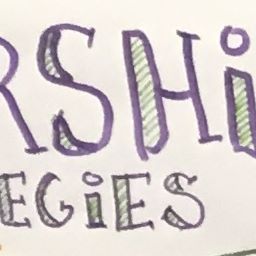 RSHi
EGiES